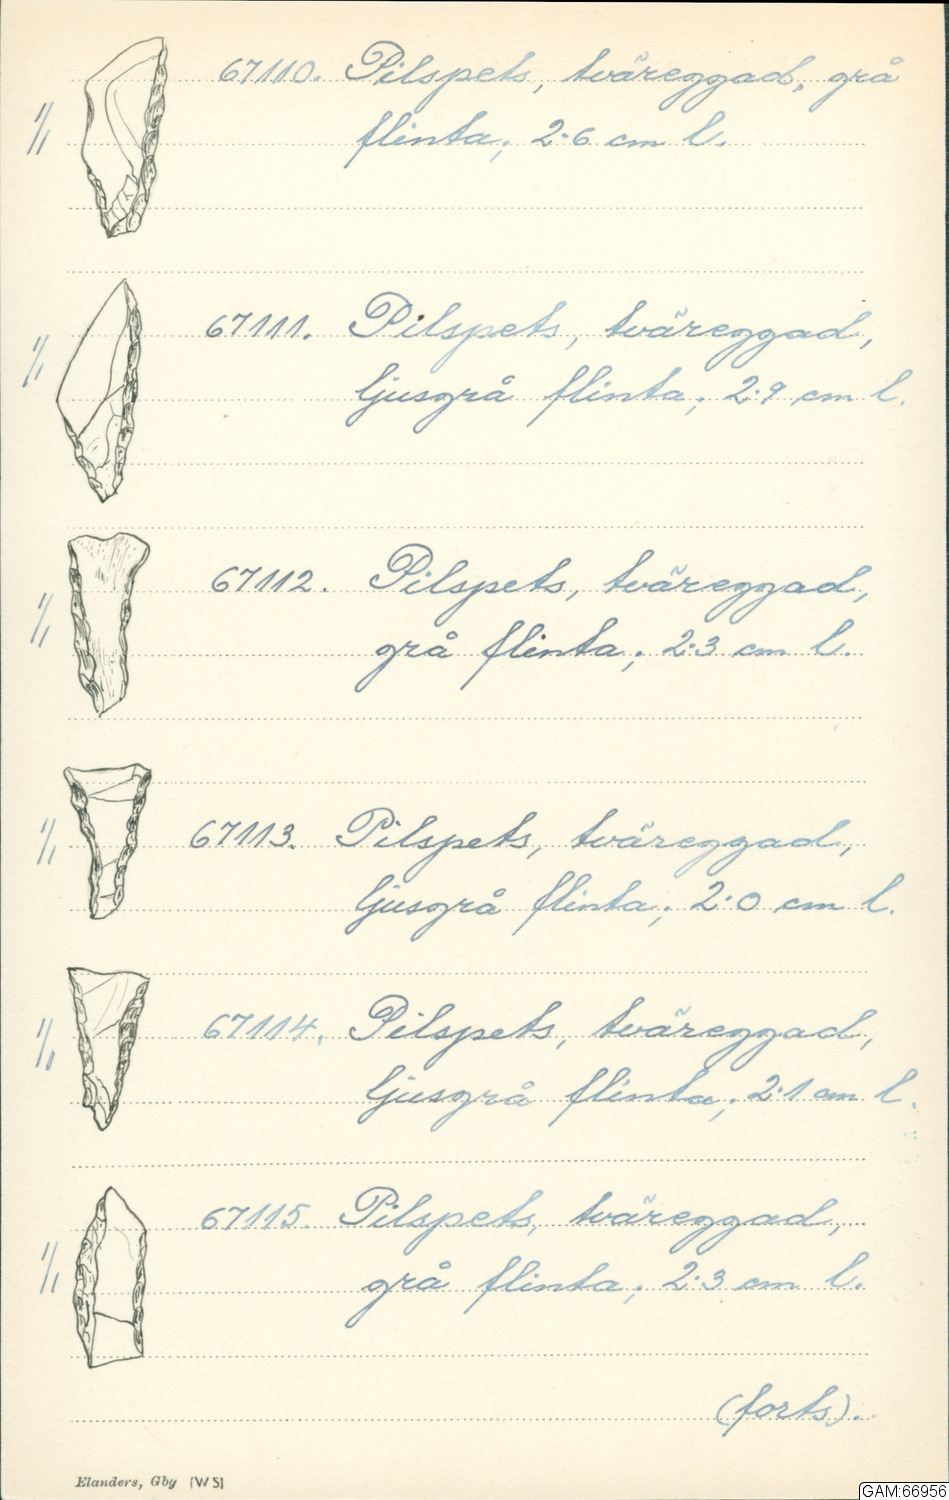 1/1 67110. Pilspets, tväreggad, grå
flinta; 2.6 cm l.
1/1 67111. Pilspets, tväreggad,
ljusgrå flinta; 2.9 cm l.
1/1 67112. Pilspets, tväreggad,
grå flinta; 2.3 cm l.
1/1 67113. Pilspets, tväreggad,
ljusgrå flinta; 2.0 cm l.
1/1 67114. Pilspets, tväreggad,
ljusgrå flinta; 2.1 cm l.
1/1 67115. Pilspets, tväreggad,
grå flinta; 2.3 cm l.
(forts).
Elanders, Gby (W S)
GAM:66956